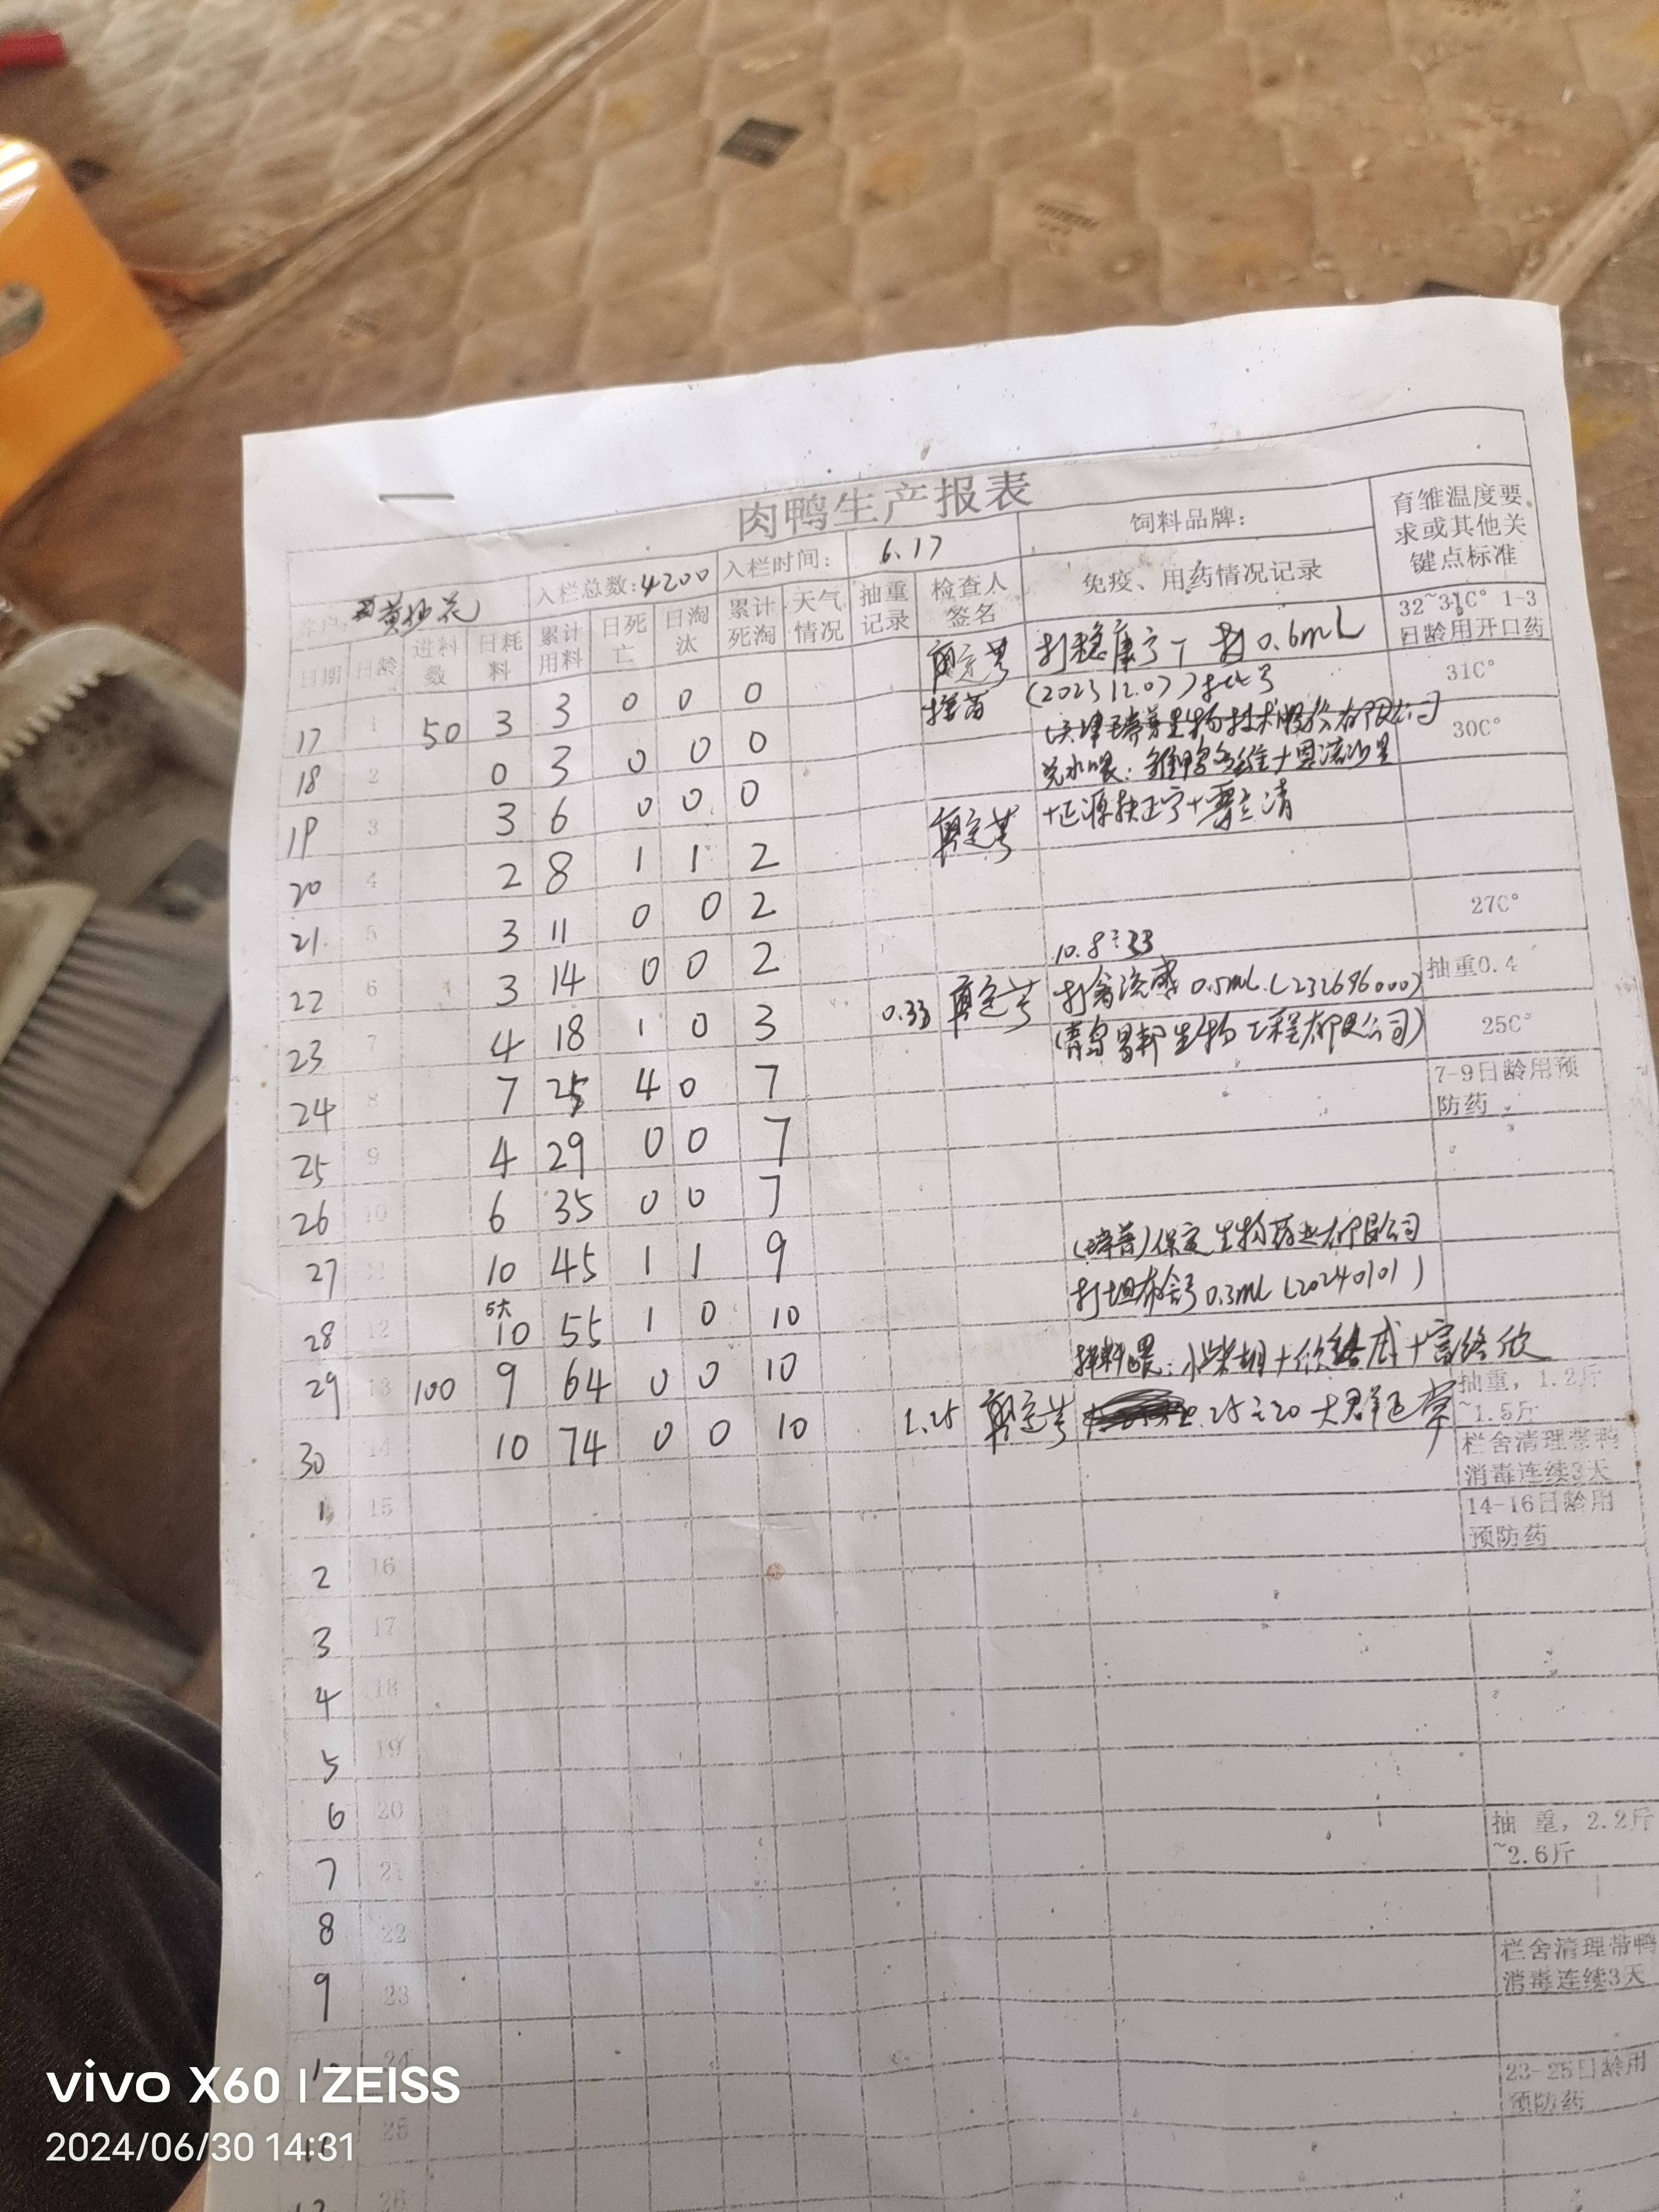 肉鸭生产报表
黄 花 入栏总数:4200 入栏时间: 6.17 饲料品牌: 育雏温度要求或其他关键点标准
日期 日龄 进料数 日耗料 累计用料 日死亡 日淘汰 累计死淘 天气情况 抽重记录 检查人签名 免疫、用药情况记录
17 1 50 3 3 0 0 0 接苗 打稳康宁 0.6mL 32~31C° 1-3日龄用开口药
(20231207)批号 31C°
18 2 0 3 0 0 0 生物技术股份有限公司 30C°
兑水喂:雏鸭多维+恩诺沙星
19 3 3 6 0 0 0
20 4 2 8 1 1 2
21 5 3 11 0 0 2 27C°
22 6 3 14 0 0 2 10.8÷33 抽重0.4
23 7 4 18 1 0 3 0.33 打禽流感 0.5mL
(青岛易邦生物工程有限公司) 25C°
24 8 7 25 4 0 7 7-9日龄用预防药
25 9 4 29 0 0 7
26 10 6 35 0 0 7
27 11 10 45 1 1 9 (瑞普)保定生物药业有限公司
28 12 10 55 1 0 10 0.3mL (20240101)
29 13 100 9 64 0 0 10 拌料喂:小柴胡+ 抽重,1.2斤~1.5斤
30 14 10 74 0 0 10 1.25 大群正常 栏舍清理带鸭消毒连续3天
1 15 14-16日龄用预防药
2 16
3 17
4 18
5 19
6 20 抽 重,2.2斤~2.6斤
7 21
8 22 栏舍清理带鸭消毒连续3天
9 23
10 24 23-25日龄用预防药
25
26
vivo X60 | ZEISS
2024/06/30 14:31